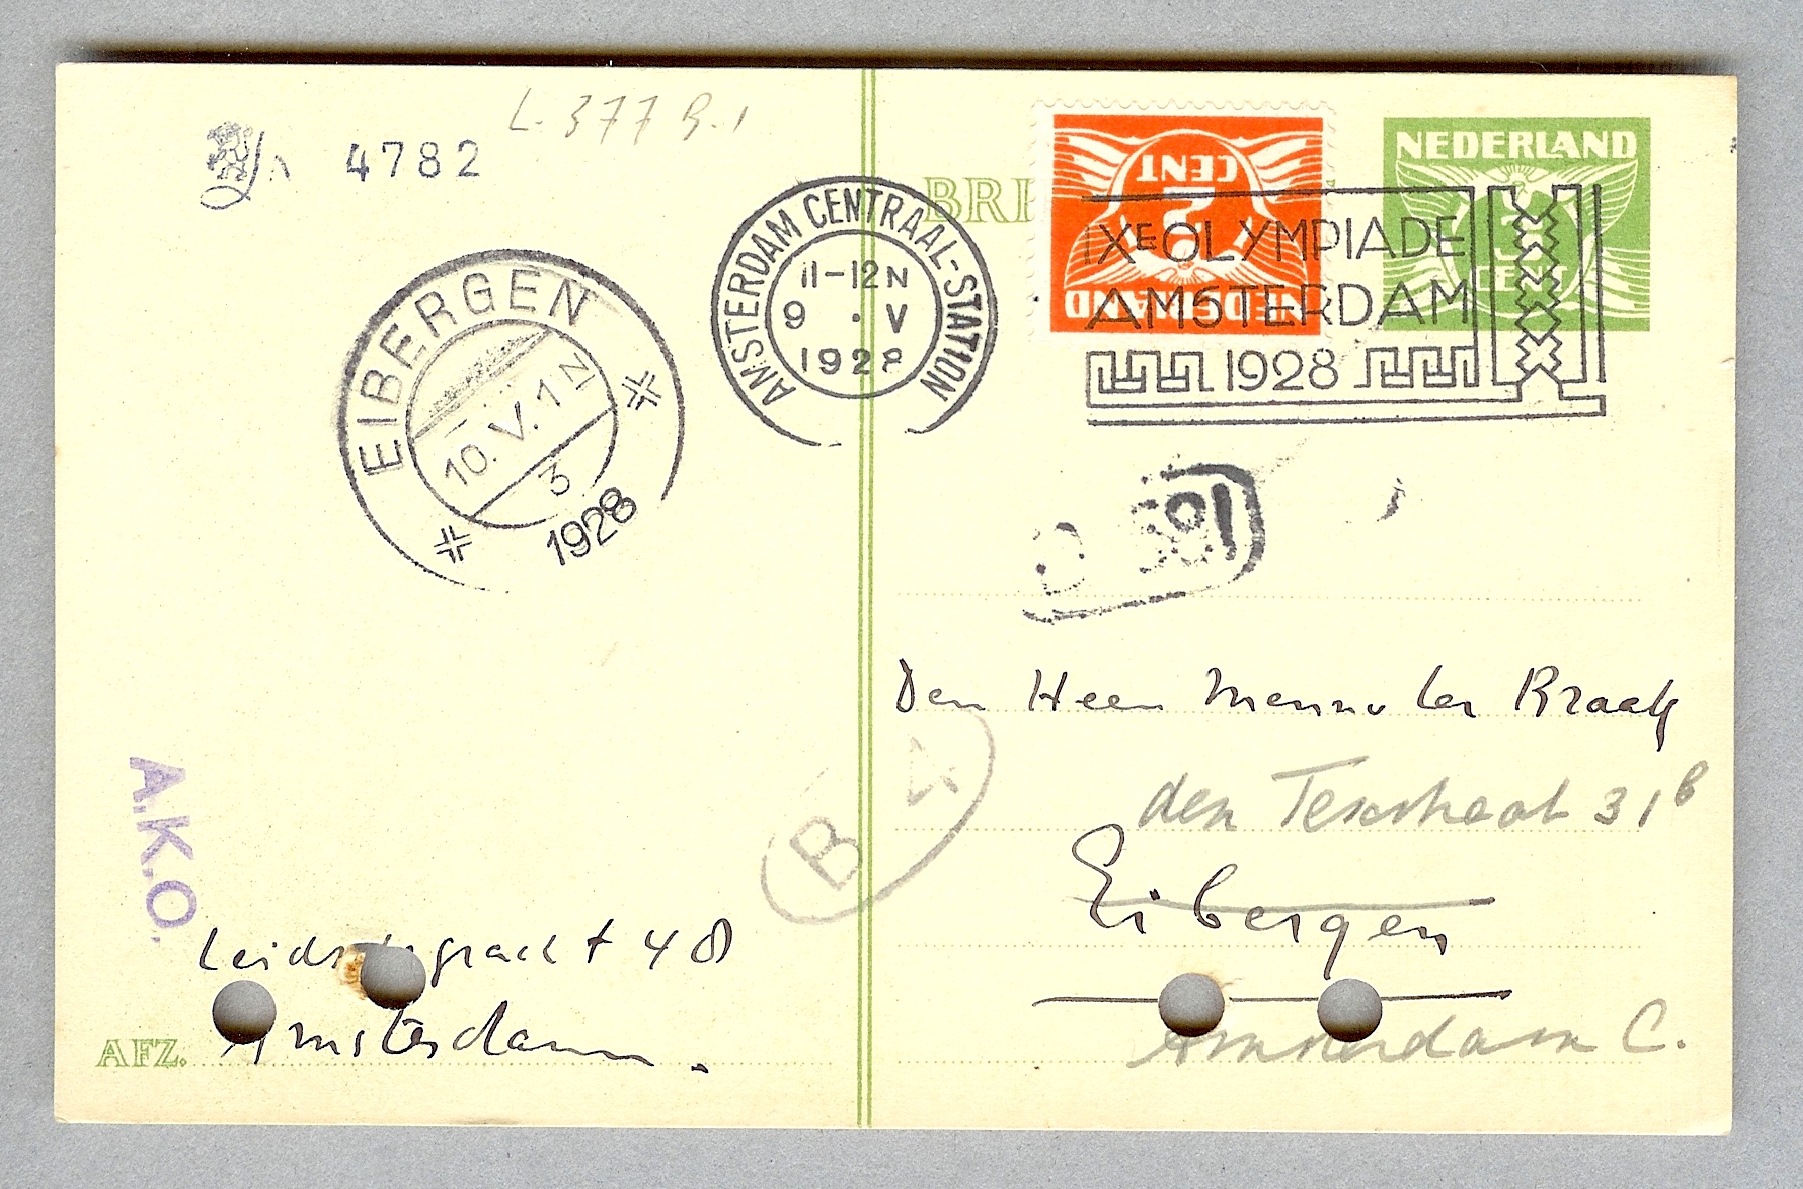 L. 377 B.1
4782
EIBERGEN
10.V.1N
3
1928
AMSTERDAM CENTRAAL-STATION
11-12N
9 . V
1928
BRI
NEDERLAND
2
CENT
NEDERLAND
IXE OLYMPIADE
AMSTERDAM
1928
Den Heer Menno ter Braak
31 b
Eibergen
Amsterdam C.
B 4
A.K.O.
Leidsegracht 48
AFZ. Amsterdam.